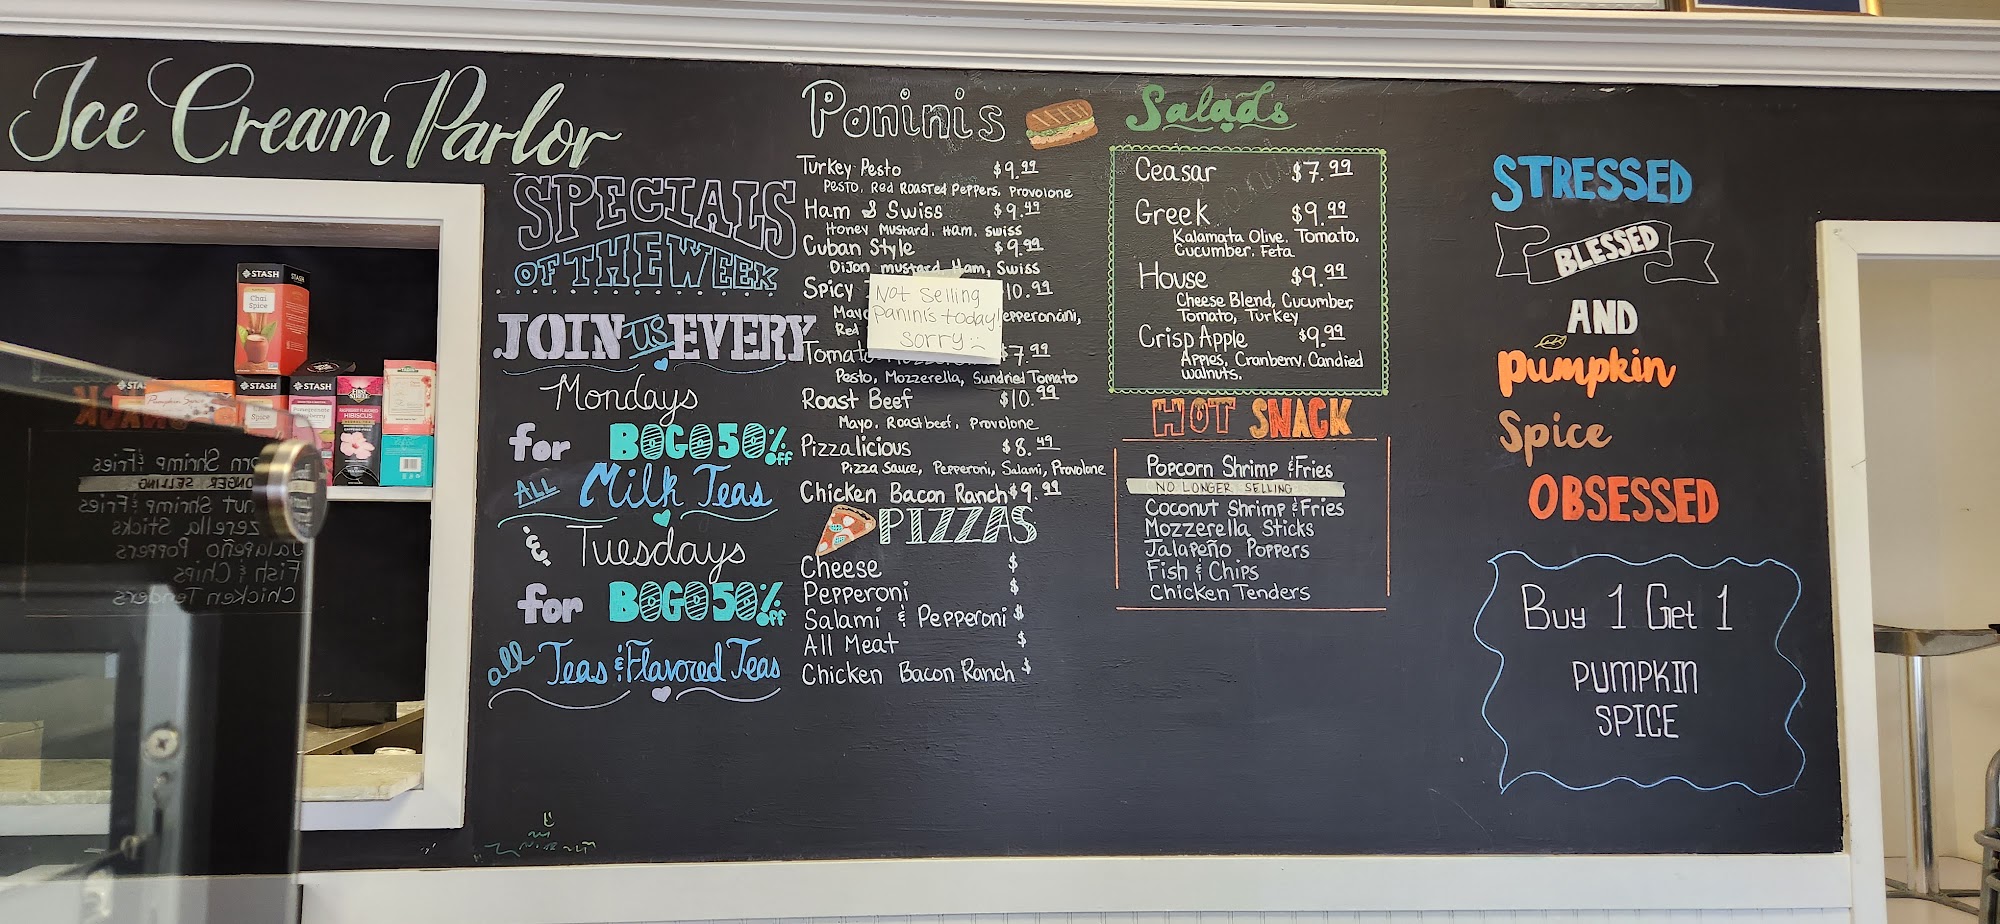 Ice Cream Parlor
SPECIALS
OF THE WEEK
JOIN US EVERY
Mondays
for BOGO 50% off
ALL Milk Teas
& Tuesdays
for BOGO 50% off
all Teas & Flavored Teas
Paninis
Turkey Pesto $9.99
Pesto, Red Roasted Peppers, Provolone
Ham & Swiss $9.49
Honey Mustard, Ham, Swiss
Cuban Style $9.99
Dijon mustard, Ham, Swiss
Spicy 10.99
Mayo epperoncini,
Red
Not Selling
panini's today!
sorry :(
Tomato Mozzarella $7.99
Pesto, Mozzerella, Sundried Tomato
Roast Beef $10.99
Mayo, Roast beef, Provolone
Pizzalicious $8.49
Pizza Sauce, Pepperoni, Salami, Provolone
Chicken Bacon Ranch $9.99
PIZZAS
Cheese $
Pepperoni $
Salami & Pepperoni $
All Meat $
Chicken Bacon Ranch $
Salads
Ceasar $7.99
Greek $9.99
Kalamata Olive, Tomato,
Cucumber, Feta
House $9.99
Cheese Blend, Cucumber,
Tomato, Turkey
Crisp Apple $9.99
Apples, Cranberry, Candied
walnuts.
HOT SNACK
Popcorn Shrimp & Fries
NO LONGER SELLING
Coconut Shrimp & Fries
Mozzerella Sticks
Jalapeño Poppers
Fish & Chips
Chicken Tenders
STRESSED
BLESSED
AND
Pumpkin
Spice
OBSESSED
Buy 1 Get 1
PUMPKIN
SPICE
STASH
STASH
Chai
Spice
STASH
STASH
STASH
Chai
Spice
HIBISCUS